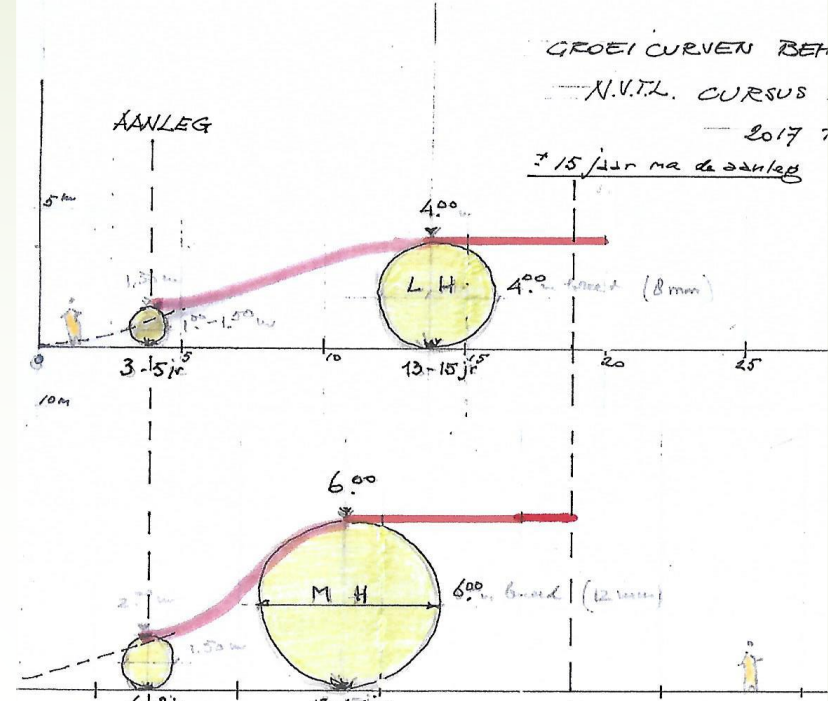 GROEI CURVEN BEH
N.V.T.L. CURSUS
2017
± 15 jaar na de aanleg
AANLEG
5 m
4.00
1.50 m
L. H.
4.00 m breed (8 mm)
1.00-1.50 m
0 5 10 15 20 25
3-5 jr 13-15 jr
10 m
6.00
M H
6.00 m breed (12 mm)
1.50 m